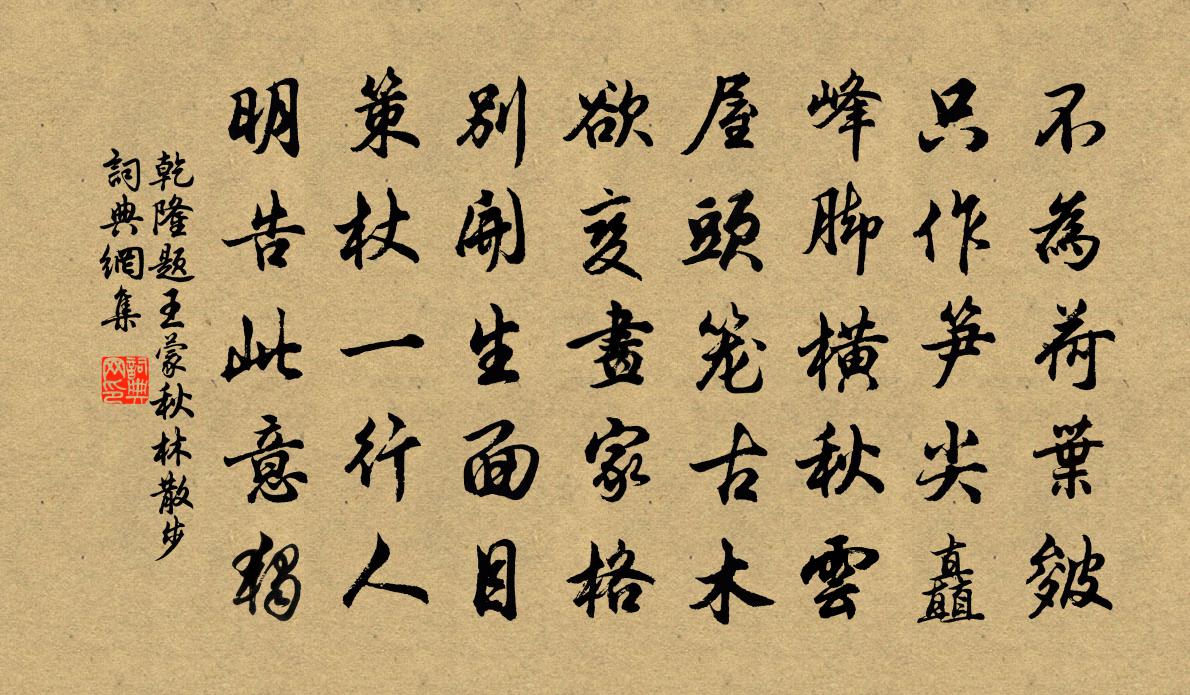 不為荷葉皴
只作笋尖矗
峰脚橫秋雲
屋頭笼古木
欲变畫家格
別開生面目
策杖一行人
明告此意独
乾隆題王蒙秋林散步
詞典網集
詞典网印